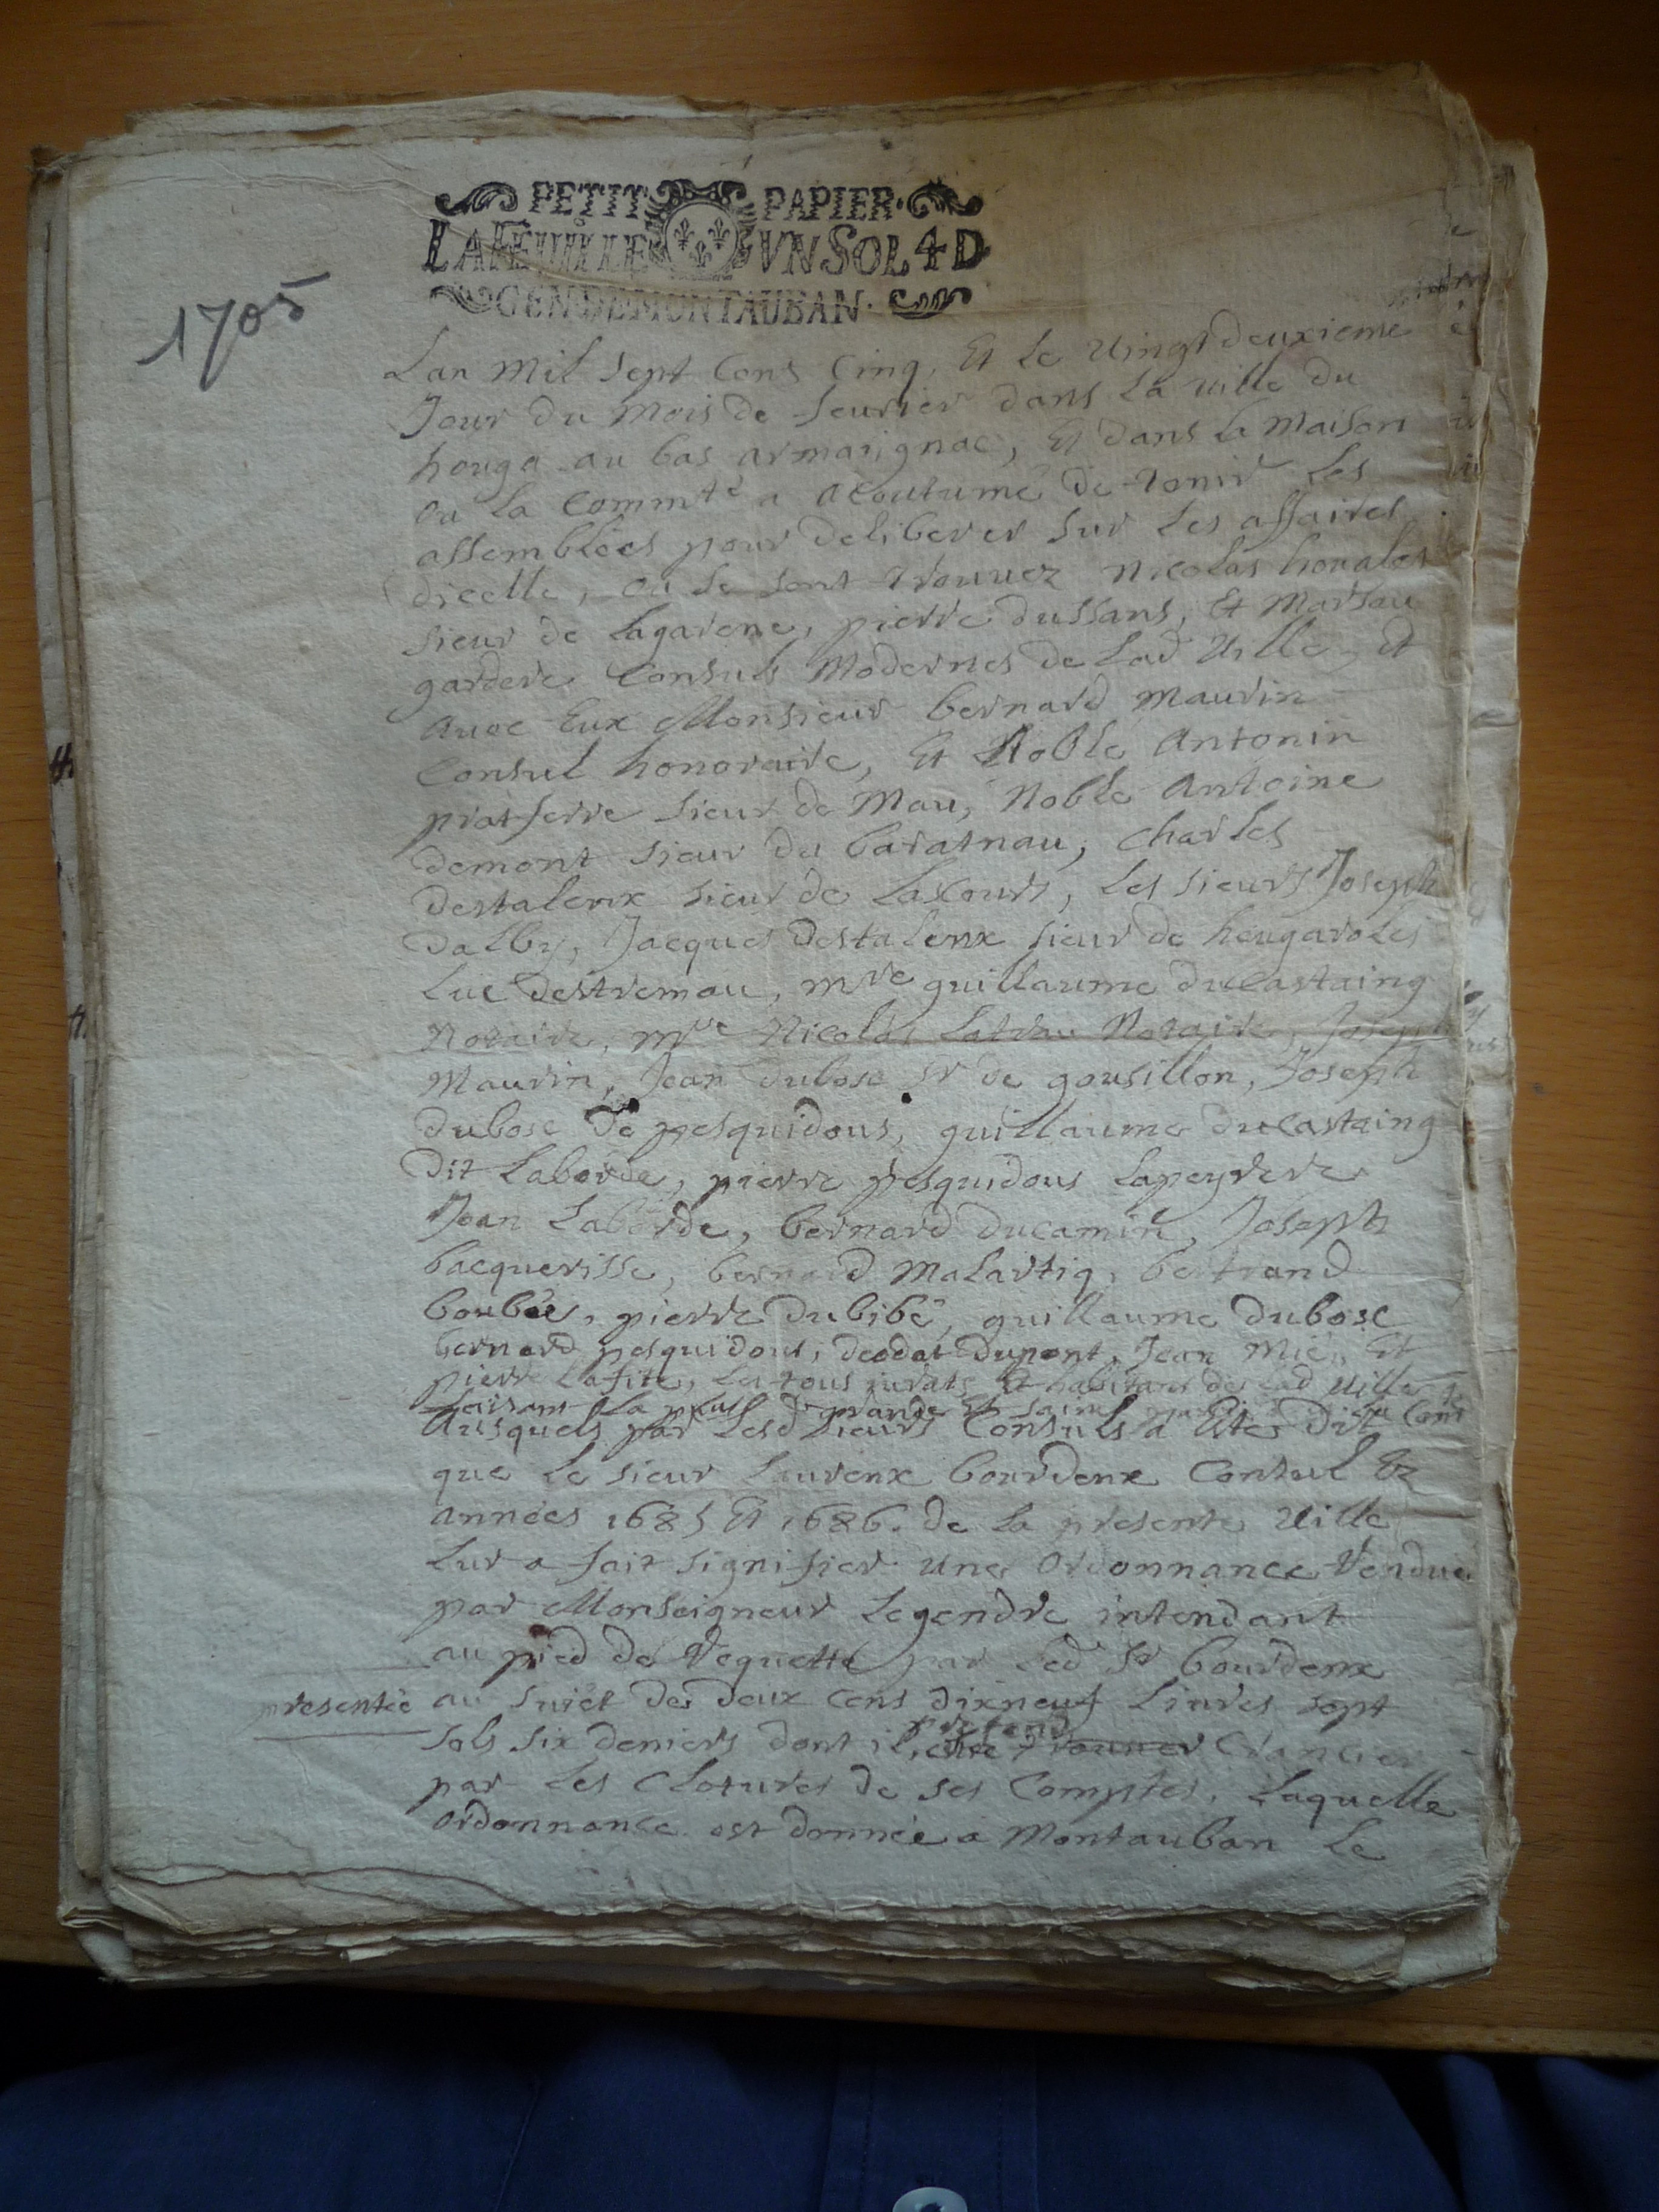 PETIT PAPIER.
LA FEUILLE VN SOL 4 D
GEN DE MONTAUBAN.
1705
Lan mil sept Cens Cinq, Et le vingt deuxieme
Jour du mois de feurier dans la ville du
houga au bas armaignac, Et dans la maison
ou la Commté a acoutumé de tenir les
assemblées pour deliberer sur les affaires
dicelle, ou se sont trouuez nicolas
sieur de lagarene, pierre dussans, Et marsau
gardere Consuls modernes de lad ville, Et
auec Eux Monsieur bernard maurin
Consul honoraire, Et Noble Antonin
pratferre sieur de mau, noble antoine
demont sieur du baratnau, Charles
destalenx sieur de lascours, les sieurs Joseph
dalby, Jacques destalenx sieur de heugaroles
luc destremau, mre guillaume ducastaing
notaire, mre nicolas latrau notaire, Joseph
maurin, Jean dubosc sr de gousillon, Joseph
dubosc de pesquidous, guillaume ducastaing
dit laborde, pierre pesquidous lapeyrere
Jean laborde, bernard ducamin, Joseph
bacquerisse, bernard malartiq, bertrand
boubée, pierre dubibé, guillaume dubosc
bernard pesquidous, deodat dupont, Jean mié, Et
pierre lafite, les tous jurats Et habitans de lad ville
faisant la plus grande Et saine
ausquels par lesd sieurs Consuls a été dit
que le sieur laurenx bourdenx Consul Ez
années 1685 Et 1686. de la presente ville
lur a fait signifier une ordonnance rendue
par Monseigneur legendre intendant
au pied de requette par led sr bourdenx
presentée
au suiet des deux cens dixneuf liures sept
sols six deniers dont il pretend etre creancier
par les clotures de ses Comptes, laquelle
ordonnance est donnée a montauban le